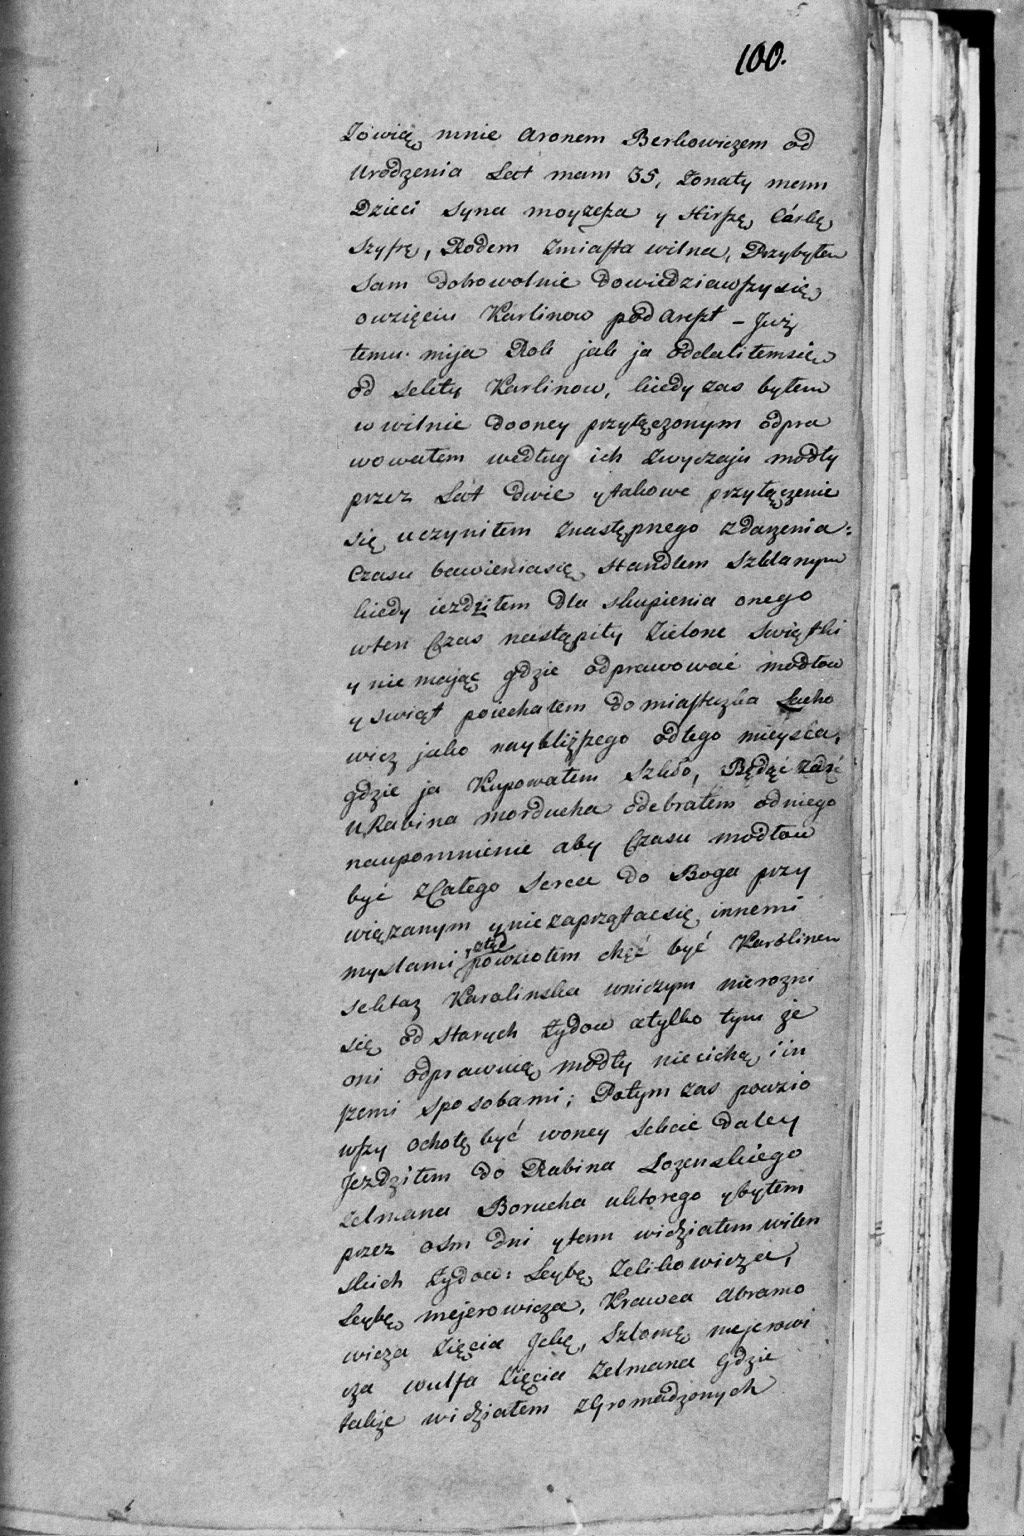 100.
Zowią mnie Aronem Berkowiczem od
Urodzenia Lat mam 35, Żonaty mam
Dzieci Syna moyzesza y Hirszę Córkę
Szyfrę, Rodem zmiasta wilna, Przybyłem
Sam dobrowolnie dowiedziawszysię
owzięciu Karlinow pod areszt – Już
temu mija Rok jak ja oddaliłemsię
od Sekty Karlinow, kiedy zas byłem
w wilnie dooney przyłączonym odpra
wowałem według ich zwyczaju modły
przez Lat dwie y takowe przyłączenie
się uczyniłem znastępnego zdarzenia:
Czasu bawieniasię Handlem Szklanym
kiedy iezdziłem dla skupienia onego
wten Czas nastąpiły Zielone Swiątki
y nie mając gdzie odprawować modłow
y swiąt poiechałem do miasteczka Lacho
wicz jako naybliższego odtego mieysca,
gdzie ja Kupowałem Szkło, Będąc zaś
u Rabina morducha odebrałem odniego
naupomnienie aby Czasu modłow
być zCałego Serca do Boga przy
wiązanym y niezaprzątacsię innemi
myslami y ztąd powziołem chęć być Karolinem
Sektaz Karolinska wniczym nierozni
się od Starych Żydow atylko tym że
oni odprawuią modły niecichą i in
szemi sposobami; Potym zas powzio
wszy ochotę być woney Sekcie daley
Jezdziłem do Rabina Lozenskiego
Zelmana Borucha uktorego y byłem
przez osm dni y tam widziałem wilen
skich Żydow: Leybę Zelikowicza,
Leybę mejerowicza, Krawca Abramo
wicza Zięcia Jckę, Szlomę mejerowi
cza wulfa Zięcia Zelmana gdzie
także widziałem zGromadzonych